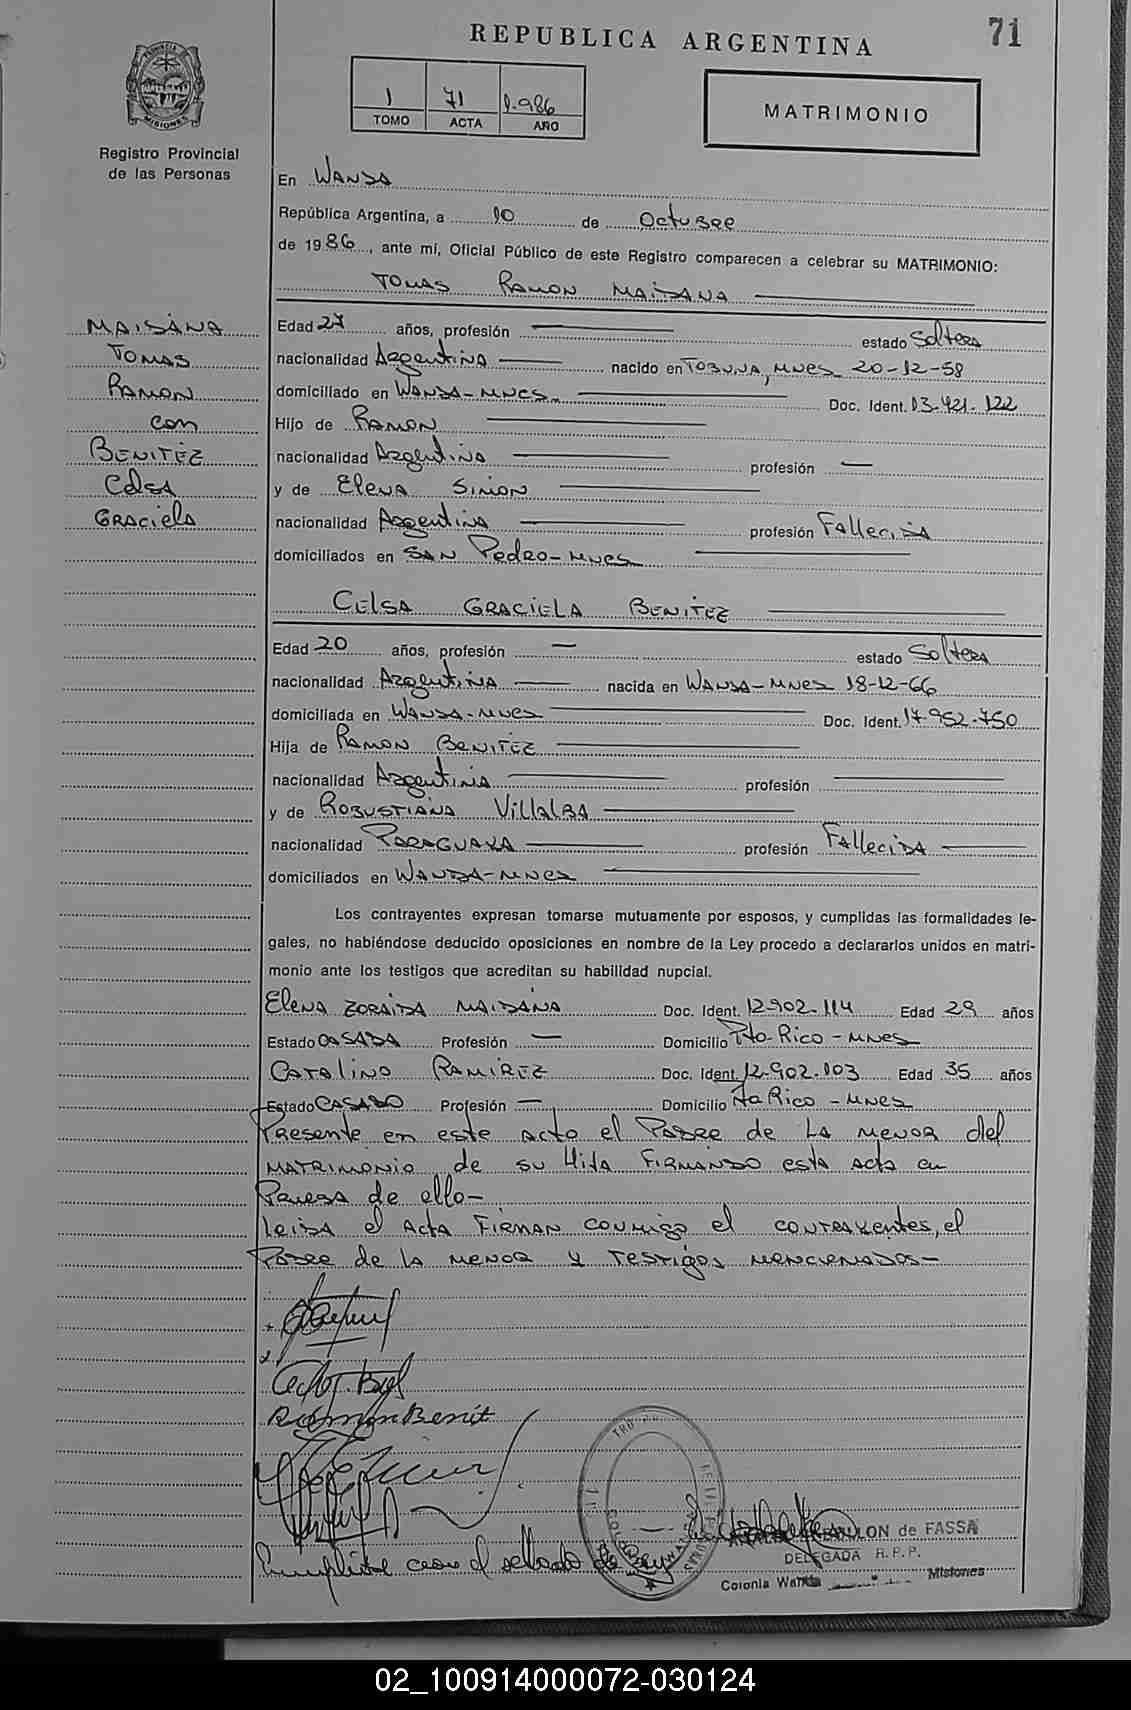 REPUBLICA ARGENTINA
71
1 71 1.986
TOMO ACTA AÑO
MATRIMONIO
PROVINCIA DE MISIONES
Registro Provincial
de las Personas
En WANDA
República Argentina, a 10 de Octubre
de 1986, ante mí, Oficial Público de este Registro comparecen a celebrar su MATRIMONIO:
TOMAS RAMON MAIDANA
MAIDANA
TOMAS
RAMON
con
BENITEZ
Celsa
GRACIELA
Edad 27 años, profesión — estado Soltera
nacionalidad Argentina nacido en TOBUNA, MNES 20-12-58
domiciliado en WANDA-MNES Doc. Ident. 13.421.122
Hijo de RAMON
nacionalidad Argentina profesión —
y de Elena SIMON
nacionalidad Argentina profesión Fallecida
domiciliados en SAN Pedro-MNES
CELSA GRACIELA BENITEZ
Edad 20 años, profesión — estado Soltera
nacionalidad Argentina nacida en WANDA-MNES 18-12-66
domiciliada en WANDA-MNES Doc. Ident. 17.952.750
Hija de RAMON BENITEZ
nacionalidad Argentina profesión
y de ROBUSTIANA VILLALBA
nacionalidad PARAGUAYA profesión Fallecida
domiciliados en WANDA-MNES
Los contrayentes expresan tomarse mutuamente por esposos, y cumplidas las formalidades le-
gales, no habiéndose deducido oposiciones en nombre de la Ley procedo a declararlos unidos en matri-
monio ante los testigos que acreditan su habilidad nupcial.
Elena ZORAIDA MAIDANA Doc. Ident. 12.902.114 Edad 29 años
Estado CASADA Profesión — Domicilio Pto-Rico-MNES
CATALINO RAMIREZ Doc. Ident. 12.902.003 Edad 35 años
Estado CASADO Profesión — Domicilio Pto Rico-MNES
Presente en este acto el Padre de LA menor del
MATRIMONIO de su Hija FIRMANDO esta acta en
Prueba de ello-
Leida el Acta FIRMAN conmigo el contrayentes, el
Padre de la menor y Testigos mencionados-
Ramon Benit
Cumplase con el sellado de Ley
LON de FASSA
DELEGADA R.P.P.
Colonia Wanda Misiones
02_100914000072-030124